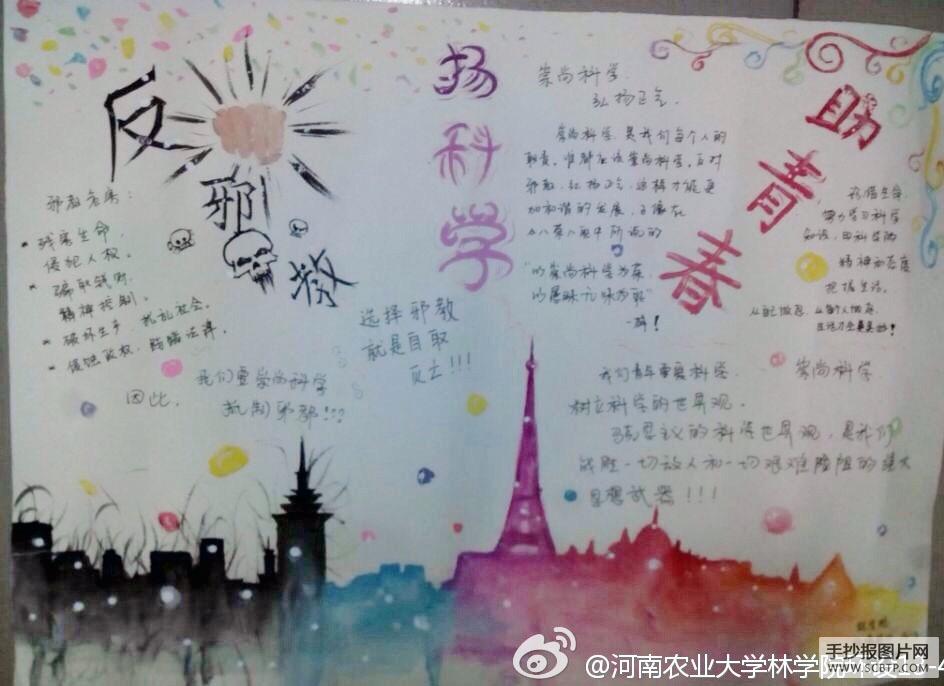 反邪教
扬科学
助青春
邪教危害:
残害生命,
侵犯人权。
骗取钱财,
精神控制。
破坏生产,扰乱社会。
侵蚀政权,践踏法律。
因此,
我们要崇尚科学
抵制邪教!!!
选择邪教
就是自取
灭亡!!!
崇尚科学
弘扬正气.
崇尚科学,是我们每个人的
职责,谁都应该崇尚科学,反对
邪教,弘扬正气,这样才能更
加和谐的发展,正像在
《八荣八耻》中所说的
"以崇尚科学为荣,
以愚昧无知为耻"
一样!
珍惜生命,
努力学习科学
知识,用科学的
精神和态度
把握生活。
从自己做起,从每个人做起,
生活才会美好!
我们青年要爱科学,崇尚科学
树立科学的世界观。
马克思主义的科学世界观,是我们
战胜一切敌人和一切艰难险阻的强大
思想武器!!!
手抄报图片网
www.SCBTP.com
@河南农业大学林学院